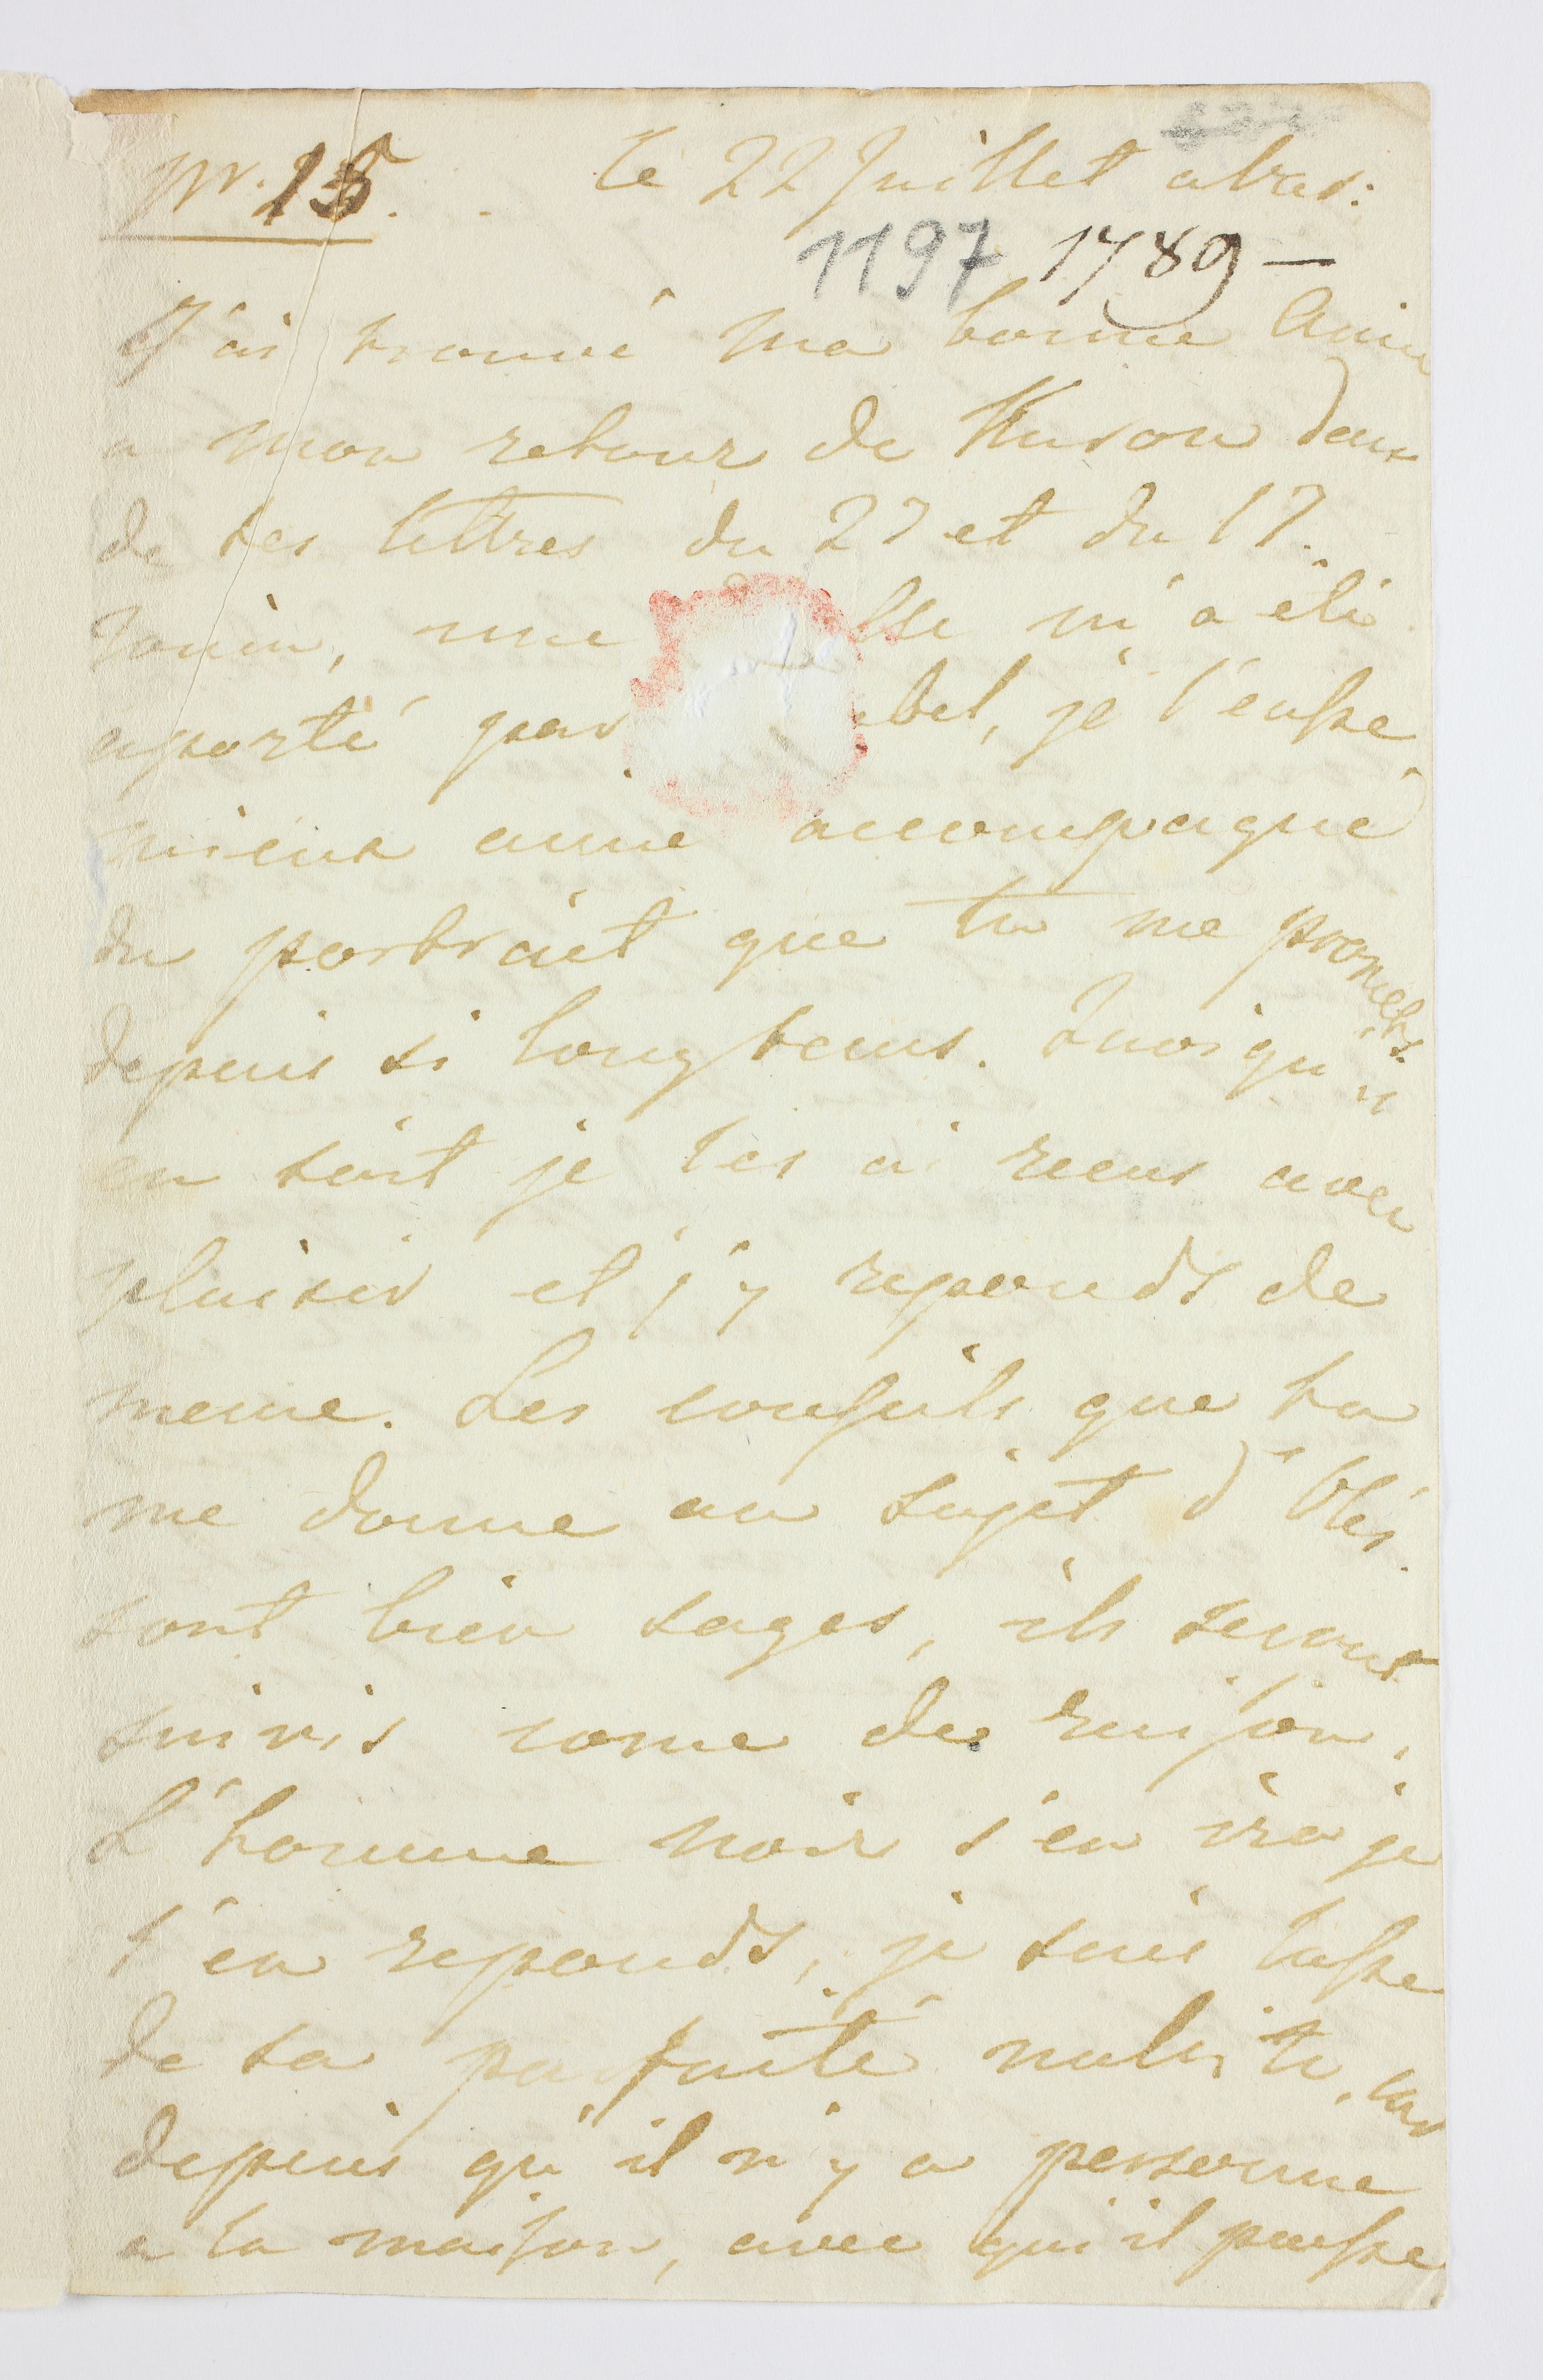 Nr. 15. Le 22 Juillet abas:
1197 1789 —
J'ai trouvé ma bonne Amie
a mon retour de Huson deux
de tes lettres du 27 et du 17.
Jouin, une m'a eté
aporté par bel, je l'eusse
mieux aimé accompagné
du portrait que tu me promets
depuis si longtems. Quoiqu'il
en soit je les ai recus avec
plaisir et j'y reponds de
meme. Les conseils que tu
me donne au sujet d'Olès.
sont bien sages, ils seront
suivis come de raison,
L'homme noir s'en ira je
t'en reponds, je suis lasse
de sa parfaite nulité, car
depuis qu'il n'y a personne
a la maison, avec qui il puisse